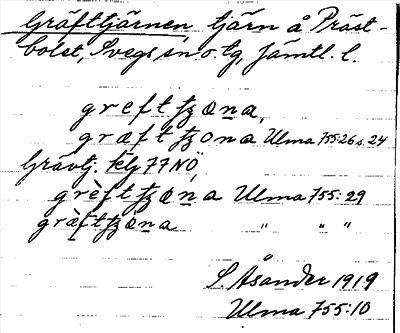 Gräftjärnen tjärn å Präst-
bolet, Svegs sn o. tg, Jämtl. l.
greftʒœna,
græftʒona Ulma 755:26 s. 24
Grävtj. Klg 77 NÖ,
grèftʒœna Ulma 755:29
græ̀ftʒœna " " "
S. Åsander 1919
Ulma 755:10